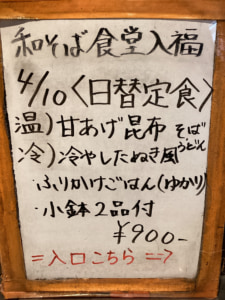 和そば食堂入福
4/10〈日替定食〉
温)甘あげ昆布 そば
冷)冷やしたぬき風 うどん
・ふりかけごはん(ゆかり)
・小鉢2品付
¥900-
=入口こちら=⇒